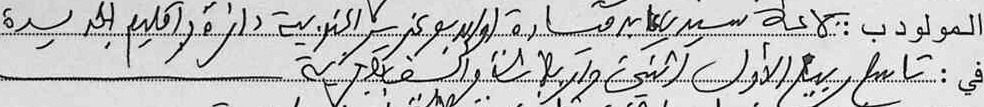 المولود ب: جماعة سيدي علي قيادة اولاد بوعزيز الجنوبية دائرة واقليم الجديدة
في: تاسع ربيع الأول اثنين واربعمائة والف هجرية